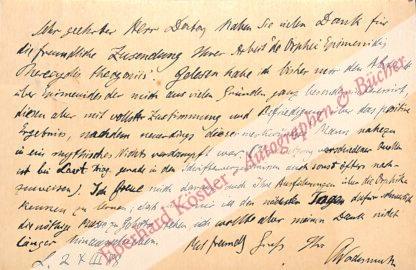 Sehr geehrter Herr Doctor, haben Sie vielen Dank für
die freundliche Zusendung Ihrer Arbeit "de Orphei Epimenidis
Pherecydis theogoniis". Gelesen habe ich bisher nur den
über Epimenides der mich aus vielen Gründen ganz besonders
diesen aber mit vollster Zustimmung und Befriedigung über das positive
Ergebnis, nachdem neuerdings dieser merkwürdige Mann nahezu
in ein mythisches Nichts verdampft war.
ist die Sage in den und sonst öfters nach-
zuweisen). Ich freue mich darauf auch Ihre Ausführungen über die Orphika
kennen zu lernen; in den nächsten Tagen
die nötige Musse zu finden, wollte aber meinen Dank nicht
länger hinausschieben. Mit freundl. Gruss Ihr
Reinhard Köstler, Autographen & Bücher